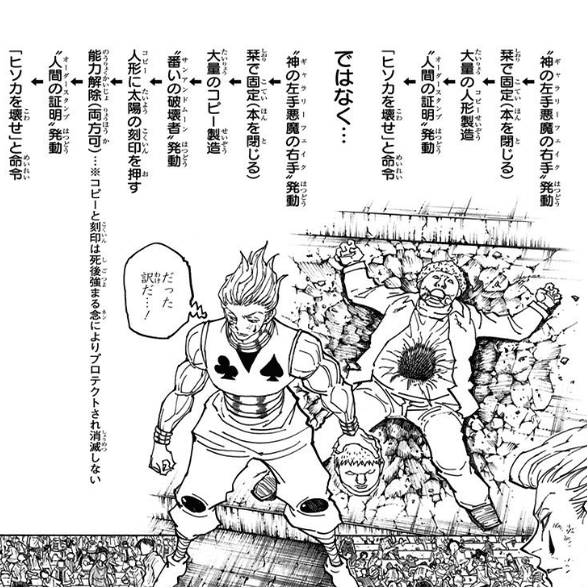 “神の左手悪魔の右手”発動
↓
栞で固定(本を閉じる)
↓
大量の人形製造
↓
“人間の証明”発動
↓
「ヒソカを壊せ」と命令
ではなく…
“神の左手悪魔の右手”発動
↓
栞で固定(本を閉じる)
↓
大量のコピー製造
↓
“番いの破壊者”発動
↓
人形に太陽の刻印を押す
↓
能力解除(両方可)…※コピーと刻印は死後強まる念によりプロテクトされ消滅しない
↓
“人間の証明”発動
↓
「ヒソカを壊せ」と命令
だった
訳だ…!!